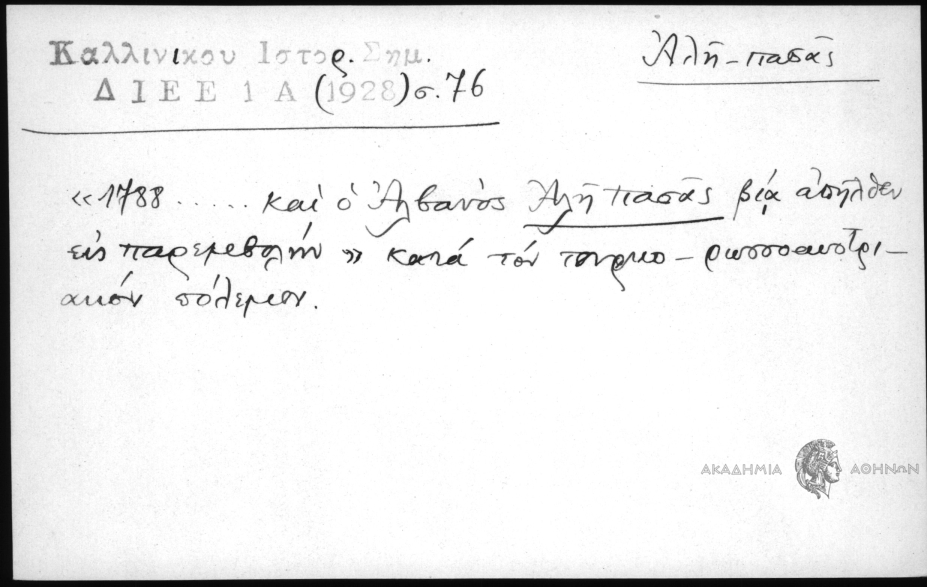 Καλλινικου Ιστορ. Σημ.
Ἀλῆ-πασᾶς
ΔΙΕΕ 1 Α (1928) σ. 76
«1788 ...... καὶ ὁ Ἀλβανὸς Ἀλῆ Πασᾶς βίᾳ ἀπῆλθεν
εἰς παρεμβολὴν» κατά τόν τουρκο-ρωσσοαυστρι-
ακόν πόλεμον.
ΑΚΑΔΗΜΙΑ ΑΘΗΝΩΝ